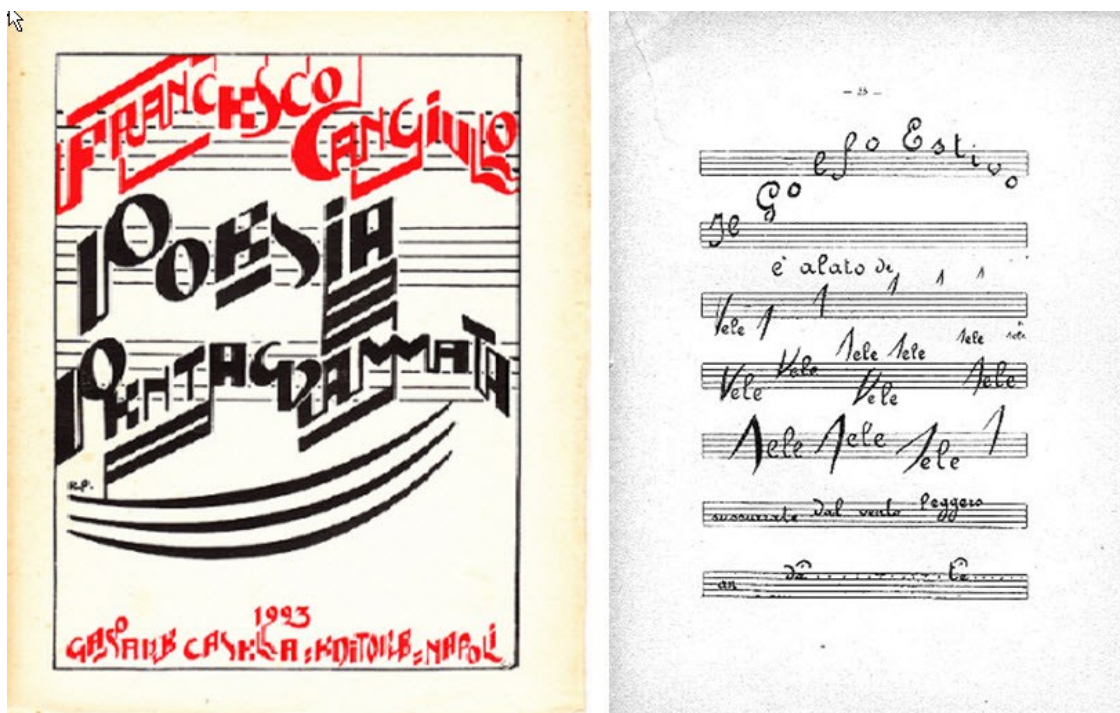 FRANCESCO
CANGIULLO
POESIA
PENTAGRAMMATA
R.P.
1923
GASPARE CASELLA = EDITORE = NAPOLI
— 25 —
Il Golfo Estivo
è alato de
Vele
Vele Vele Vele Vele Vele Vele Vele Vele
Vele Vele Vele
sussurrate dal vento leggero
an dâ tê